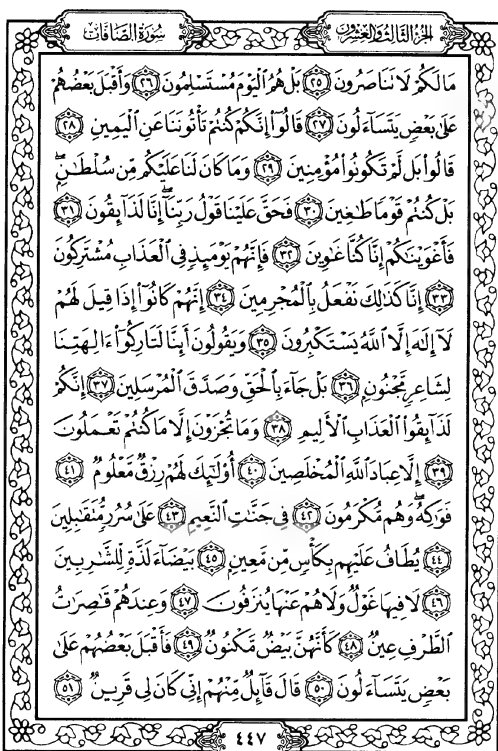 الجزء الثالث والعشرون سورة الصافات
مَالَكُمْ لَا تَنَاصَرُونَ ٢٥ بَلْ هُمُ الْيَوْمَ مُسْتَسْلِمُونَ ٢٦ وَأَقْبَلَ بَعْضُهُمْ
عَلَىٰ بَعْضٍ يَتَسَاءَلُونَ ٢٧ قَالُوا إِنَّكُمْ كُنتُمْ تَأْتُونَنَا عَنِ الْيَمِينِ ٢٨
قَالُوا بَل لَّمْ تَكُونُوا مُؤْمِنِينَ ٢٩ وَمَا كَانَ لَنَا عَلَيْكُم مِّن سُلْطَٰنٍۖ
بَلْ كُنتُمْ قَوْمًا طَٰغِينَ ٣٠ فَحَقَّ عَلَيْنَا قَوْلُ رَبِّنَاۖ إِنَّا لَذَائِقُونَ ٣١
فَأَغْوَيْنَٰكُمْ إِنَّا كُنَّا غَٰوِينَ ٣٢ فَإِنَّهُمْ يَوْمَئِذٍ فِي الْعَذَابِ مُشْتَرِكُونَ
٣٣ إِنَّا كَذَٰلِكَ نَفْعَلُ بِالْمُجْرِمِينَ ٣٤ إِنَّهُمْ كَانُوا إِذَا قِيلَ لَهُمْ
لَا إِلَٰهَ إِلَّا اللَّهُ يَسْتَكْبِرُونَ ٣٥ وَيَقُولُونَ أَئِنَّا لَتَارِكُوا ءَالِهَتِنَا
لِشَاعِرٍ مَّجْنُونٍ ٣٦ بَلْ جَاءَ بِالْحَقِّ وَصَدَّقَ الْمُرْسَلِينَ ٣٧ إِنَّكُمْ
لَذَائِقُوا الْعَذَابِ الْأَلِيمِ ٣٨ وَمَا تُجْزَوْنَ إِلَّا مَا كُنتُمْ تَعْمَلُونَ
٣٩ إِلَّا عِبَادَ اللَّهِ الْمُخْلَصِينَ ٤٠ أُولَٰئِكَ لَهُمْ رِزْقٌ مَّعْلُومٌ ٤١
فَوَٰكِهُۖ وَهُم مُّكْرَمُونَ ٤٢ فِي جَنَّٰتِ النَّعِيمِ ٤٣ عَلَىٰ سُرُرٍ مُّتَقَٰبِلِينَ
٤٤ يُطَافُ عَلَيْهِم بِكَأْسٍ مِّن مَّعِينٍ ٤٥ بَيْضَاءَ لَذَّةٍ لِّلشَّٰرِبِينَ
٤٦ لَا فِيهَا غَوْلٌ وَلَا هُمْ عَنْهَا يُنزَفُونَ ٤٧ وَعِندَهُمْ قَٰصِرَٰتُ
الطَّرْفِ عِينٌ ٤٨ كَأَنَّهُنَّ بَيْضٌ مَّكْنُونٌ ٤٩ فَأَقْبَلَ بَعْضُهُمْ عَلَىٰ
بَعْضٍ يَتَسَاءَلُونَ ٥٠ قَالَ قَائِلٌ مِّنْهُمْ إِنِّي كَانَ لِي قَرِينٌ ٥١
٤٤٧